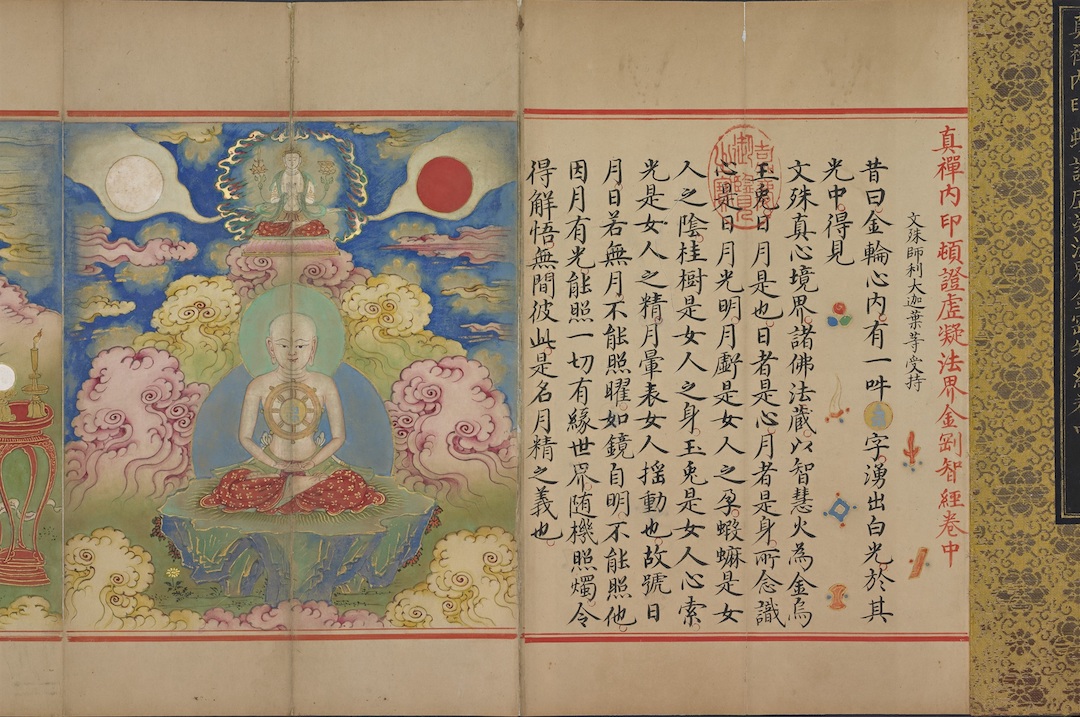 真禪內印頓證虛凝法界金剛智經卷中
文殊師利大迦葉等受持
昔曰金輪心內有一吽字湧出白光於其
光中得見
文殊真心境界諸佛法藏以智慧火為金烏
玉兔日月是也日者是心月者是身所念識
心是日月光明月虧是女人之孕蝦蟆是女
人之陰桂樹是女人之身玉兔是女人心索
光是女人之精月暈表女人搖動也故號日
月日若無月不能照曜如鏡自明不能照他
因月有光能照一切有緣世界随機照燭令
得解悟無間彼此是名月精之義也